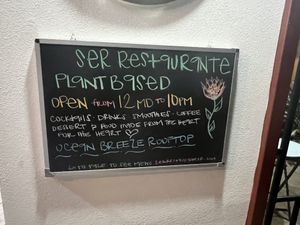 SER RESTAURANTE
PLANTBASED
OPEN FROM 12MD TO 10PM
COCKTAILS · DRINKS SMOOTHIES · COFFEE
DESSERT & FOOD MADE FROM THE HEART
FOR THE HEART
OCEAN BREEZE ROOFTOP
TO SEE MENU